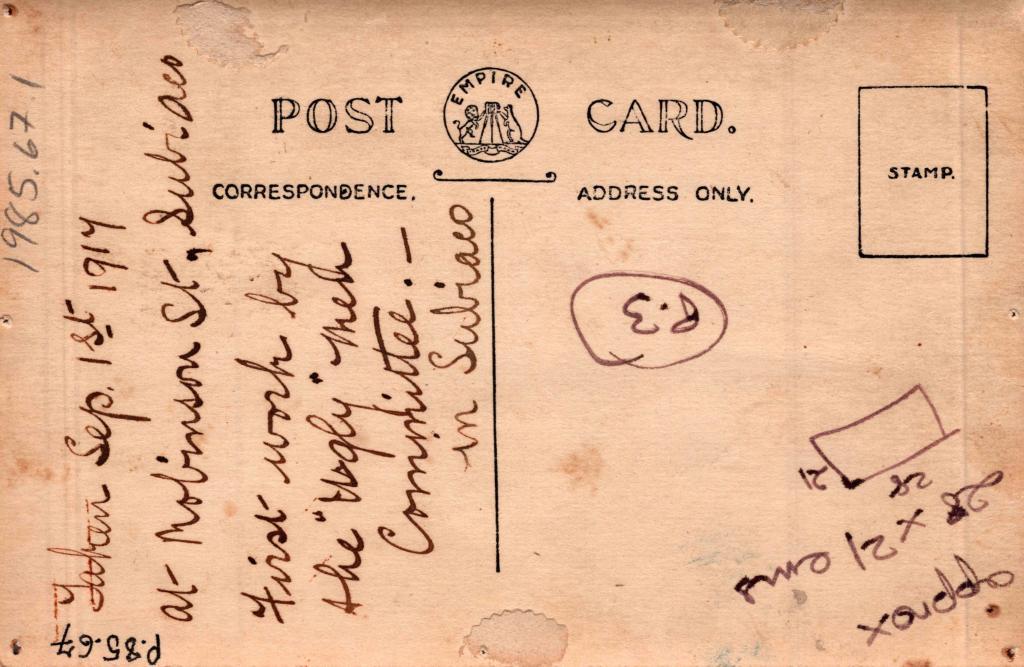 1985.67.1
POST CARD.
EMPIRE
CORRESPONDENCE.
ADDRESS ONLY.
STAMP.
Taken Sep. 1st 1917
at Robinson St., Subiaco
First work by
the "Ugly" Men
Committee. —
in Subiaco
P.3
21
28
approx
28 x 21 cms
P.85.67